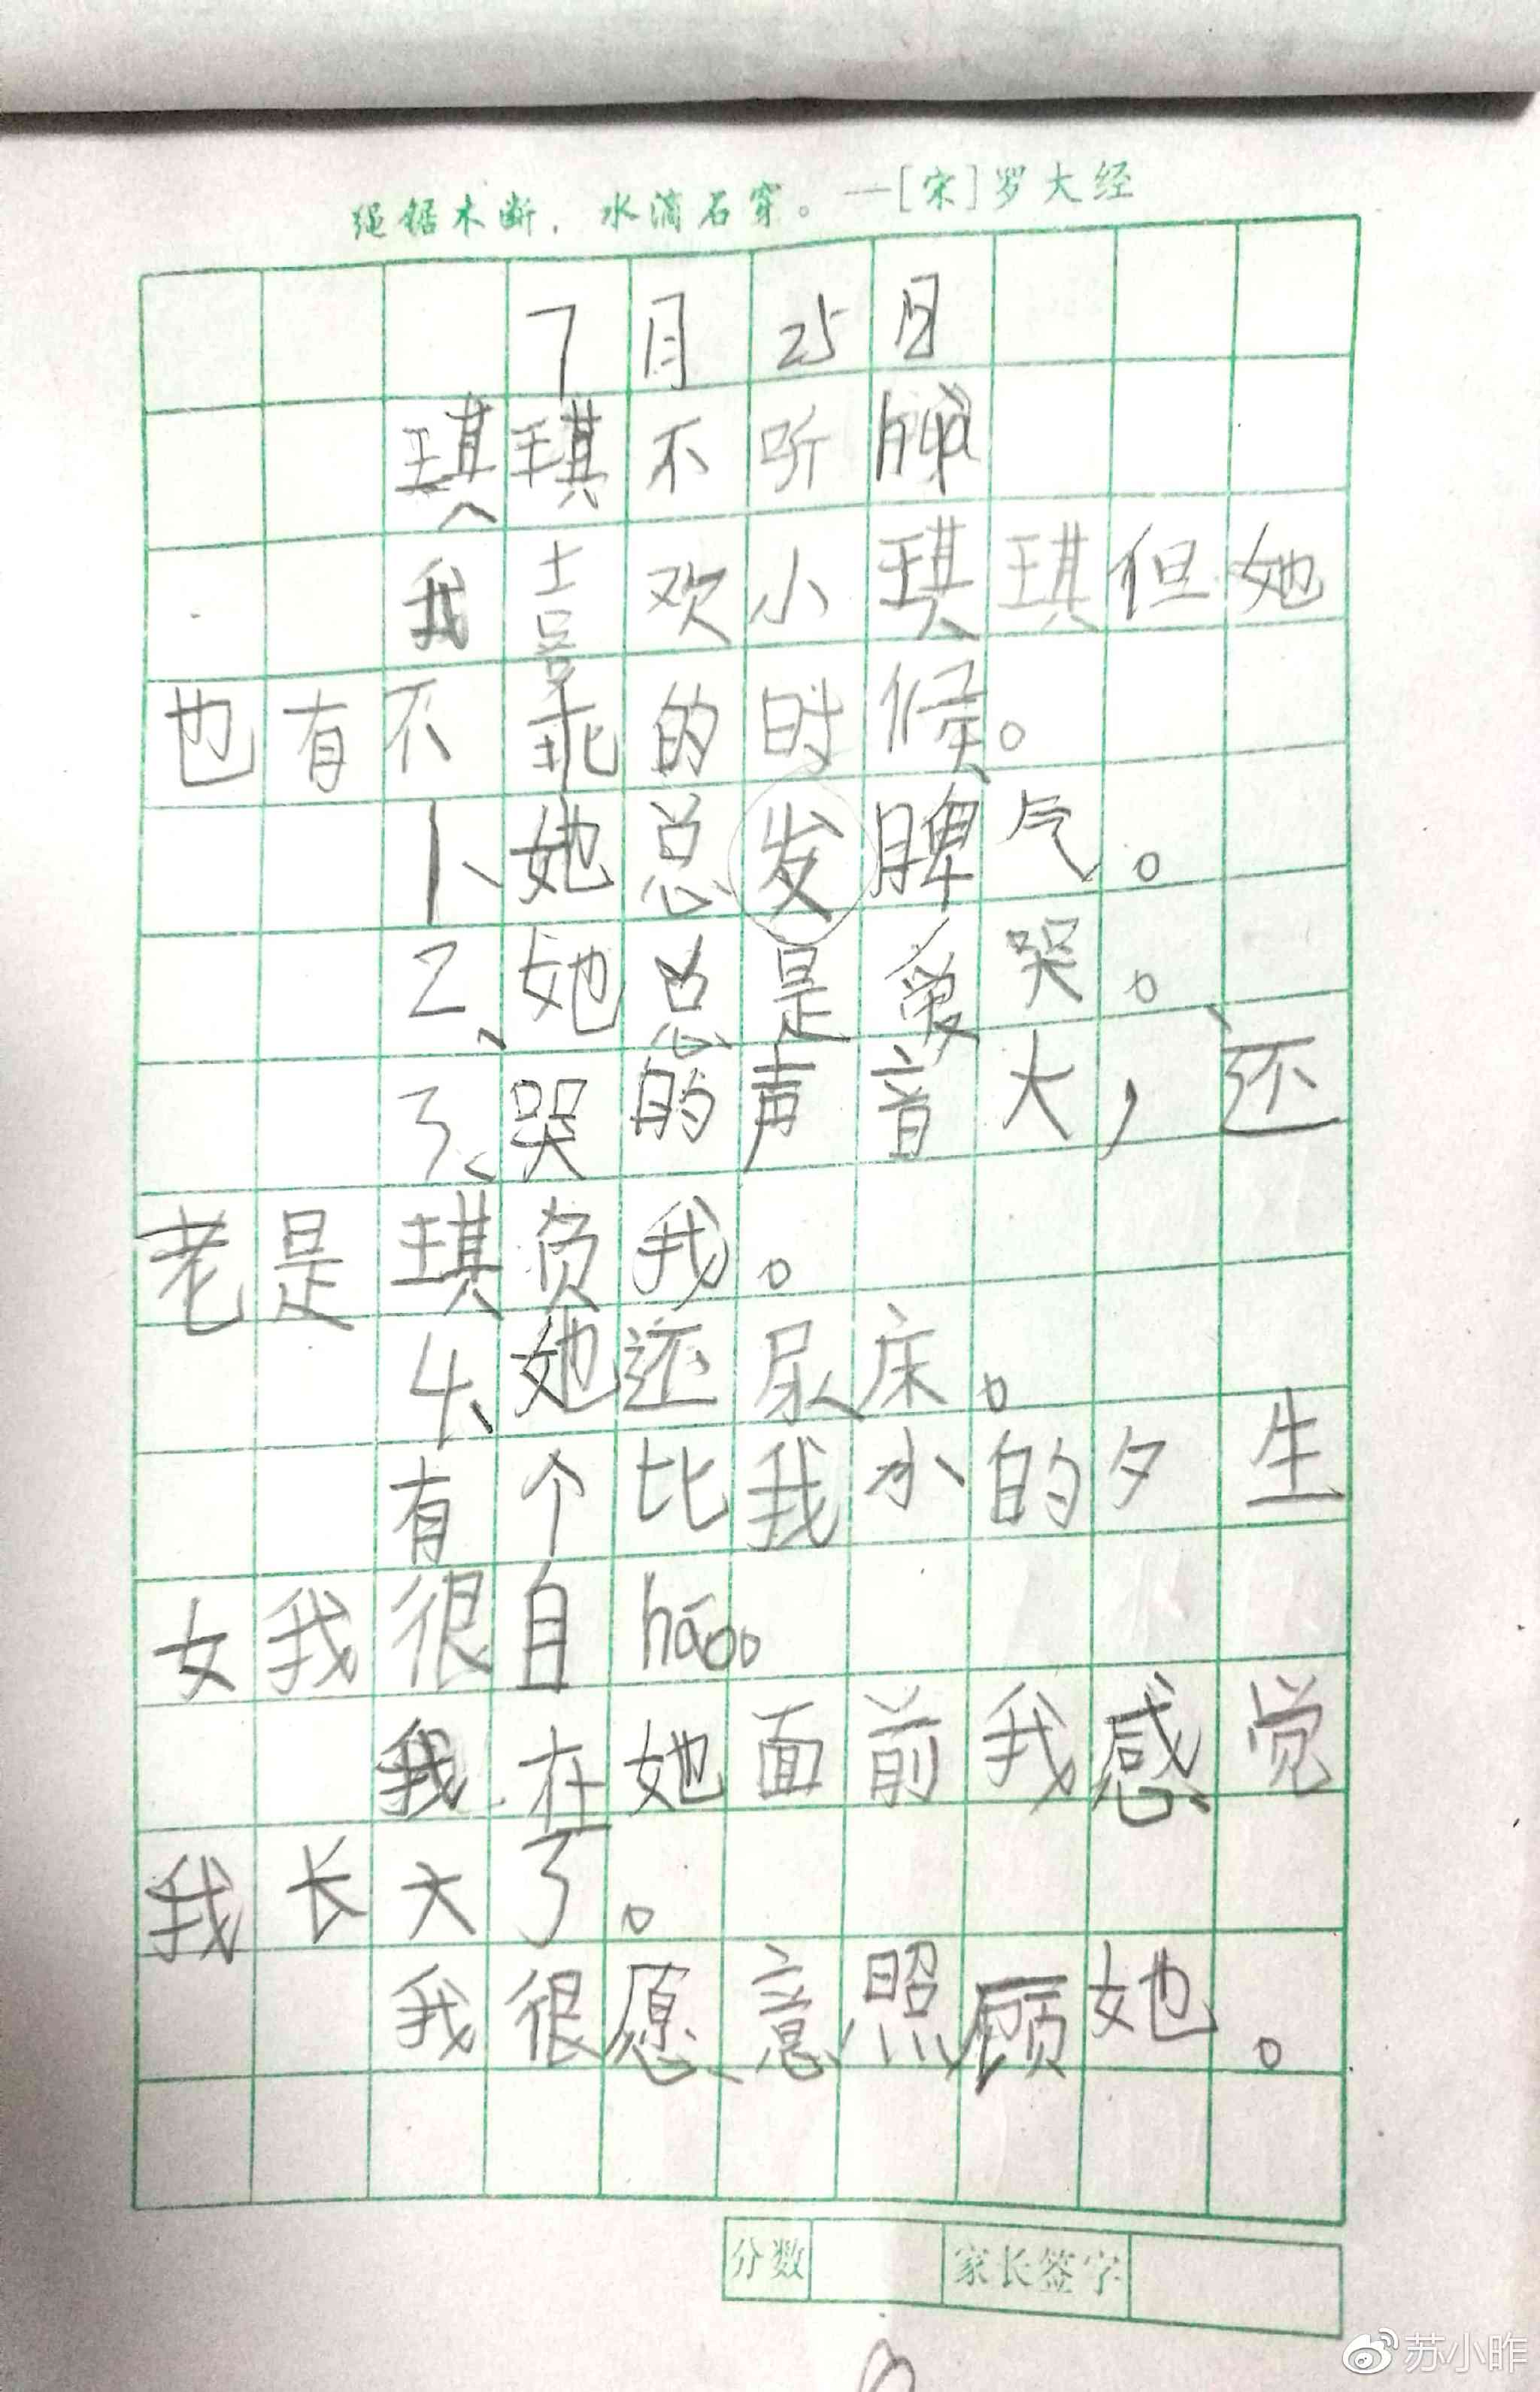 绳锯木断，水滴石穿。—[宋]罗大经
7月25日
琪琪不听huà
我喜欢小琪琪但她
也有不乖的时候。
1、她总发脾气。
2、她总是爱哭。
3、哭的声音大，还
老是琪负我。
4、她还尿床。
有个比我小的夕生
女我很自háo。
我在她面前我感觉
我长大了。
我很愿意照顾她。
分数 家长签字
苏小昨